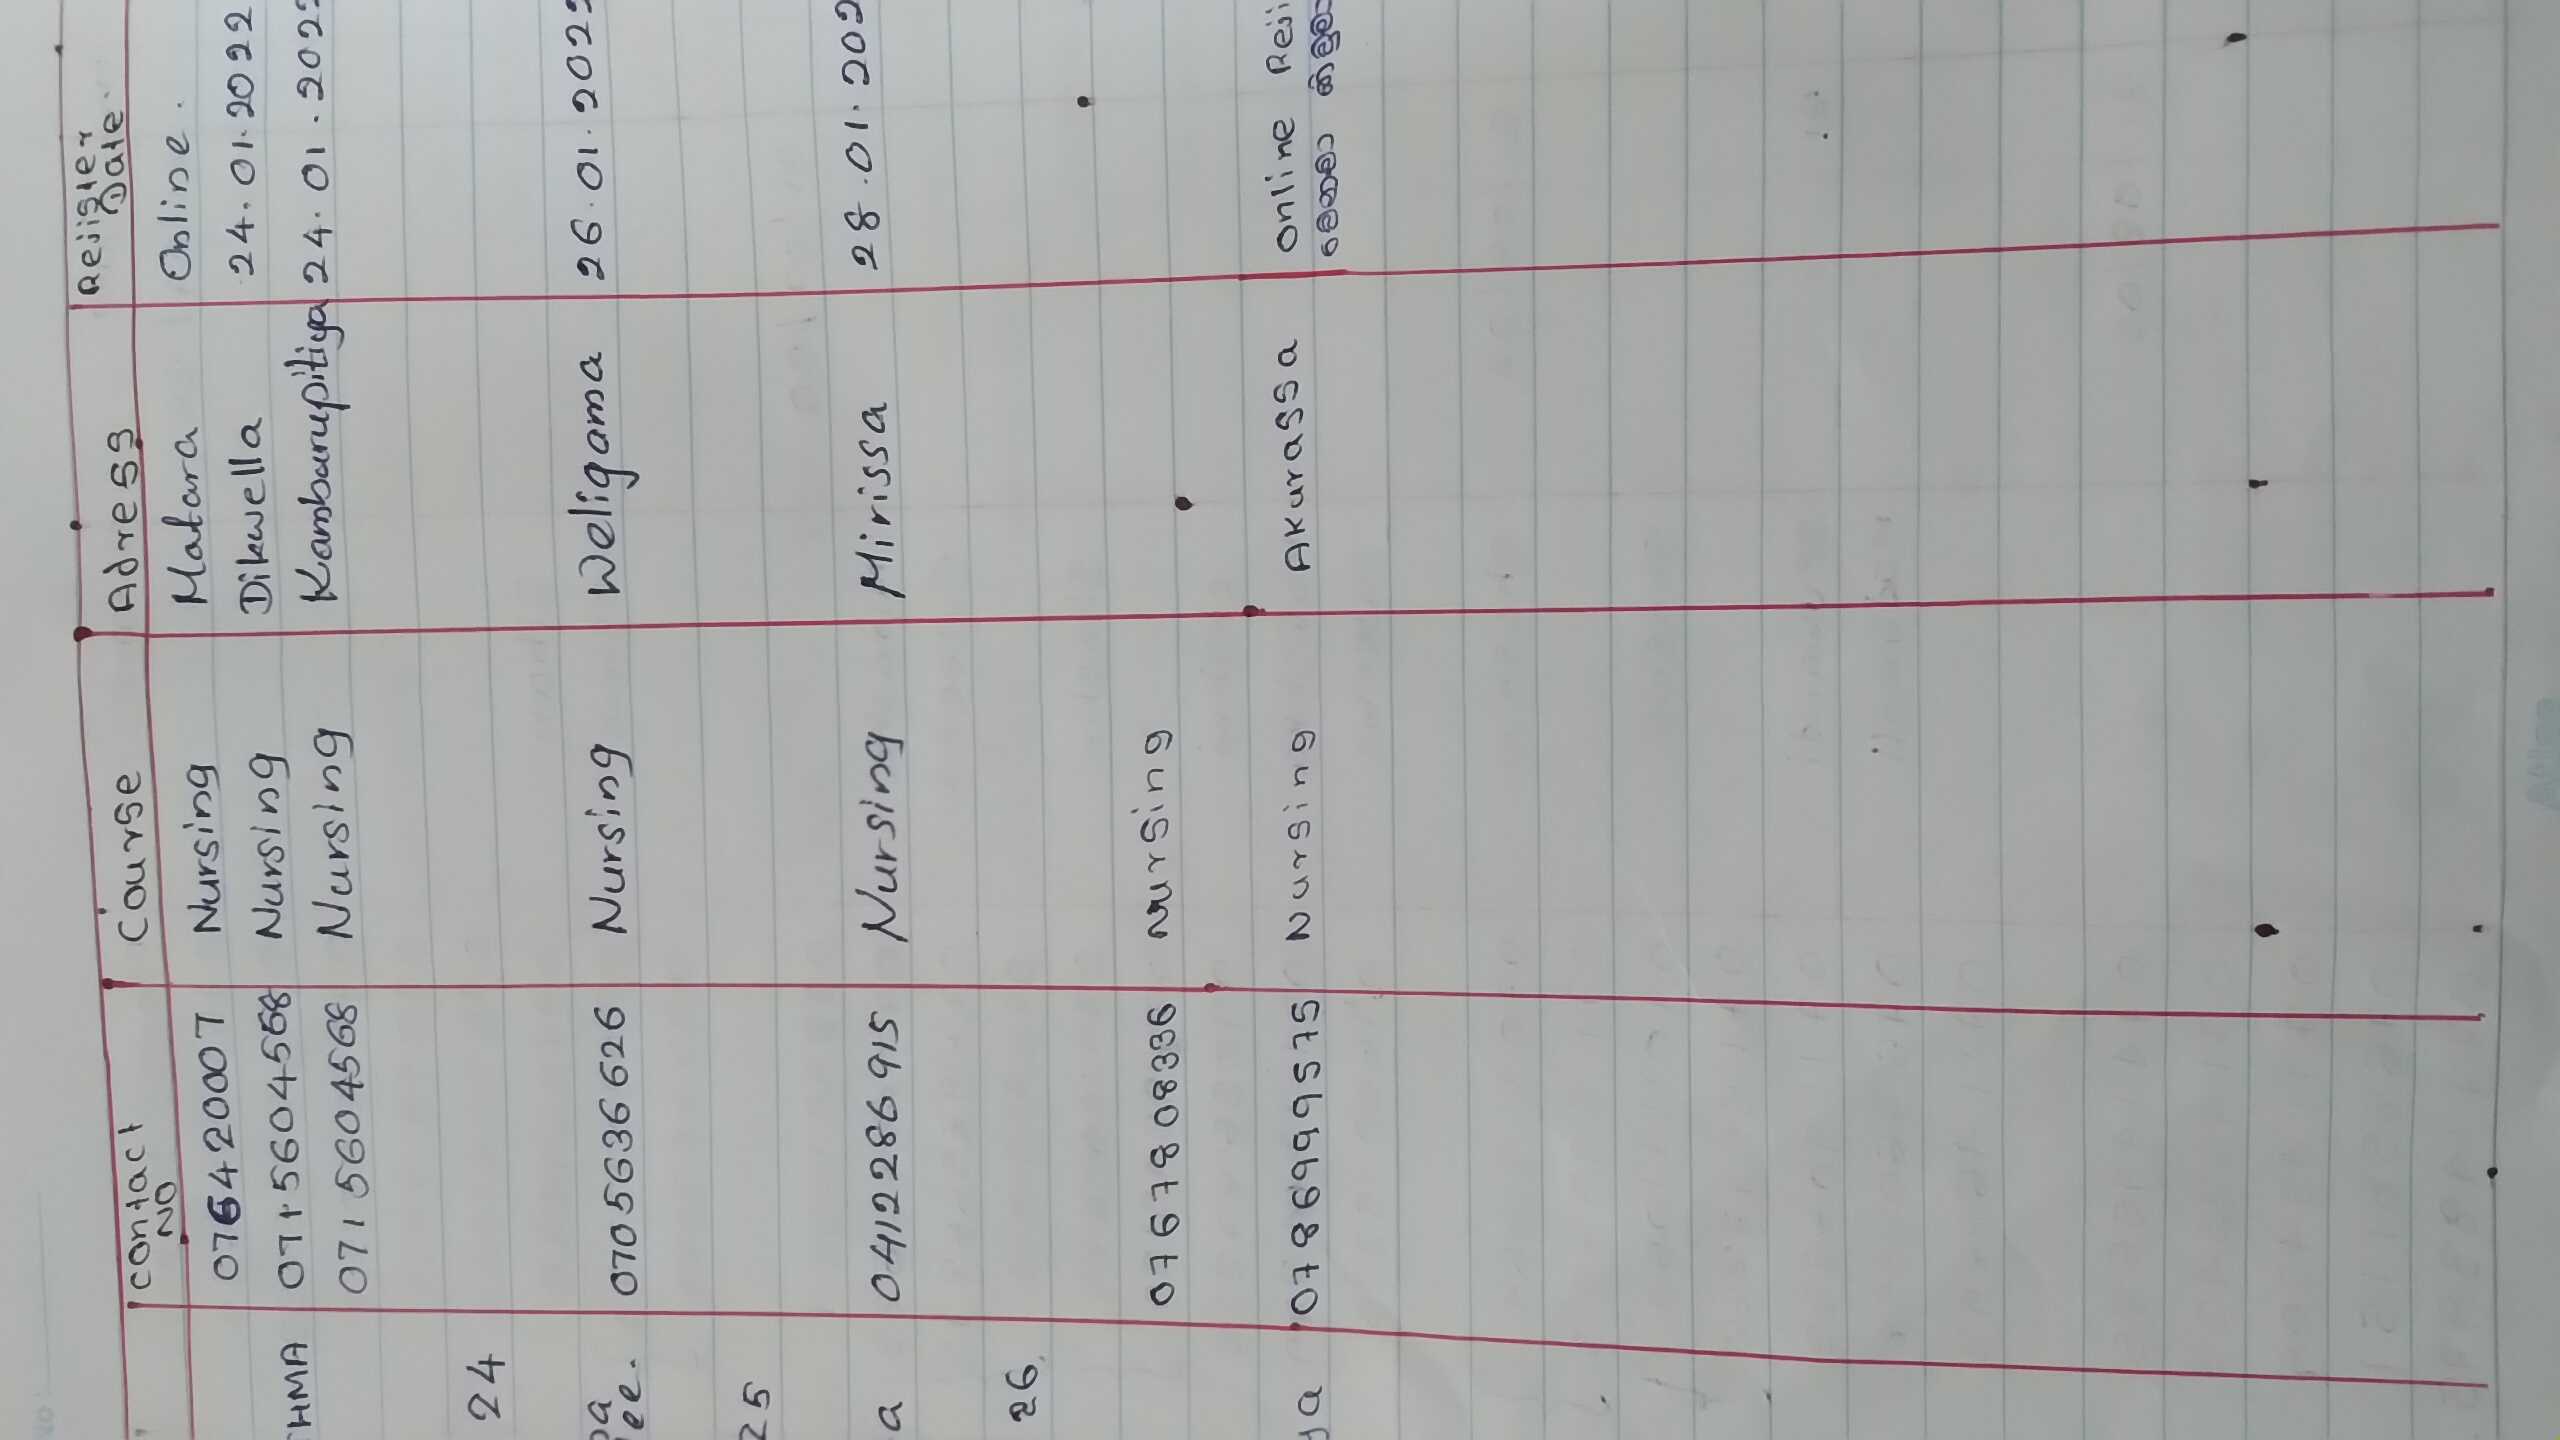 Contact NO Course Adress Rejister Date.
0764420007 Nursing Matara Online.
THMA 0715604568 Nursing Dikwella 24.01.2022
0715604568 Nursing Kamburupitiya 24.01.202
24
pa
ee. 0705636626 Nursing Weligama 26.01.202
25
a 0412286915 Nursing Mirissa 28.01.202
26.
0767808336 Nursing
ya 0786999575 Nursing Akurassa Online Reji